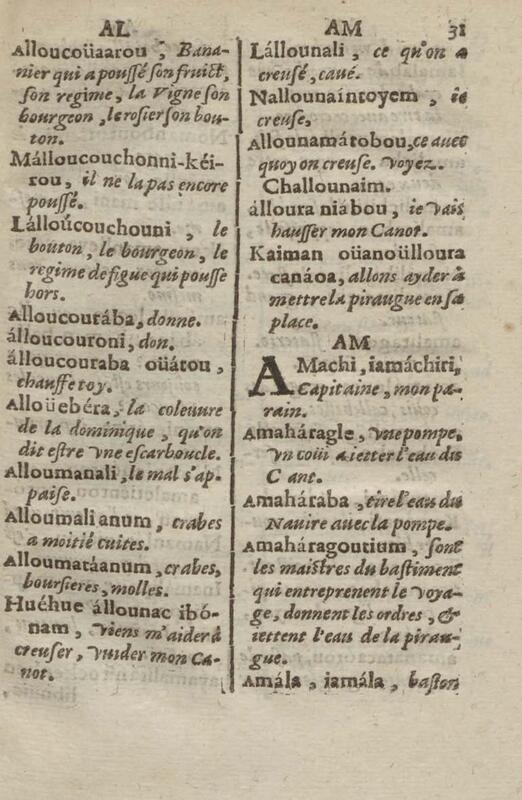 AL
Alloucoüaarou, Bana-
nier qui a poussé son fruict,
son regime, la Vigne son
bourgeon, le rosier son bou-
ton.
Málloucouchonni-kéi-
rou, il ne la pas encore
poussé.
Lálloúcouchouni, le
bouton, le bourgeon, le
regime de figue qui pousse
hors.
Alloucourába, donne.
álloucouroni, don.
álloucouraba oüátou,
chauffe toy.
Alloüebéra, la coleuure
de la dominique, qu'on
dit estre vne escarboucle.
Alloumanali, le mal s'ap-
paise.
Alloumalianum, crabes
a moitié cuites.
Alloumatáanum, crabes,
boursieres, molles.
Huéhue állounac ibó-
nam, viens m'aider à
creuser, vuider mon Ca-
not.
AM 31
Lállounali, ce qu'on a
creusé, caué.
Nallounaíntoyem, ie
creuse,
Allounamátobou, ce auec
quoy on creuse. Voyez.
Challounaim.
álloura niabou, ie vais
hausser mon Canot.
Kaiman oüanoülloura
canáoa, allons ayder à
mettre la piraugue en sa
place.
AM
AMachi, iamáchiri,
Capitaine, mon pa-
rain.
Amaháragle, vne pompe,
vn coüi a ietter l'eau du
C ant.
Amaháraba, tire l'eau du
Nauire auec la pompe.
Amaháragoutium, sont
les maistres du bastiment
qui entreprenent le voya-
ge, donnent les ordres, &
iettent l'eau de la pirau-
gue.
Amála, iamála, baston